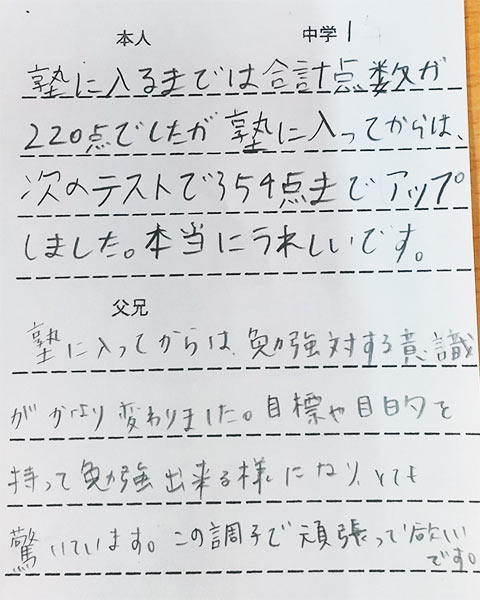 本人 中学1
塾に入るまでは合計点数が
220点でしたが塾に入ってからは、
次のテストで354点までアップ
しました。本当にうれしいです。
父兄
塾に入ってからは、勉強対する意識
がかなり変わりました。目標や目的を
持って勉強出来る様になり、とても
驚いています。この調子で頑張って欲しい
です。